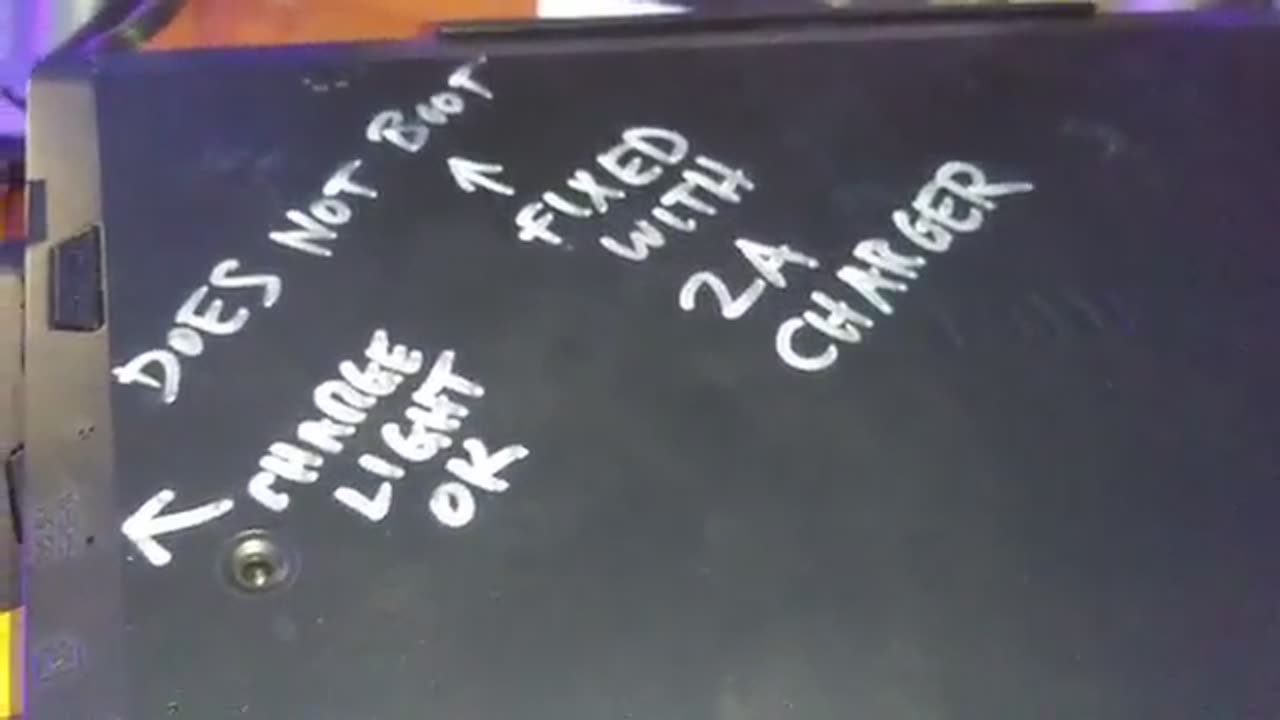 DOES NOT BOOT
↑
FIXED
WITH
2A
CHARGER
← CHARGE
LIGHT
OK